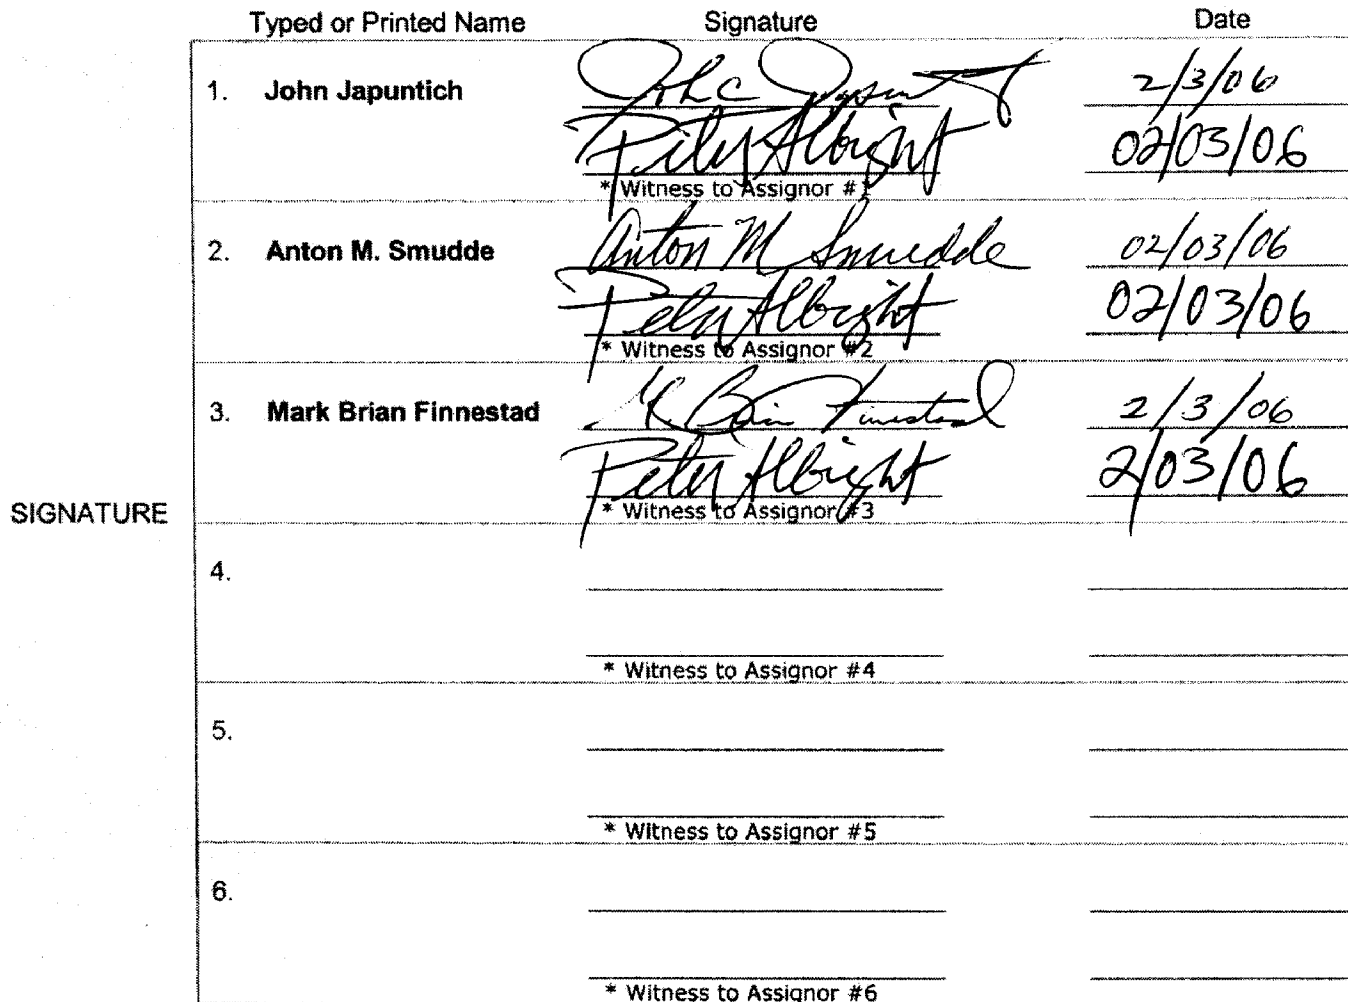 Typed or Printed Name Signature Date
1. John Japuntich John C Japuntich 2/3/06
Peter Albright 02/03/06
* Witness to Assignor #1
2. Anton M. Smudde Anton M Smudde 02/03/06
Peter Albright 02/03/06
* Witness to Assignor #2
3. Mark Brian Finnestad M Brian Finnestad 2/3/06
Peter Albright 2/03/06
* Witness to Assignor #3
SIGNATURE
4.
* Witness to Assignor #4
5.
* Witness to Assignor #5
6.
* Witness to Assignor #6